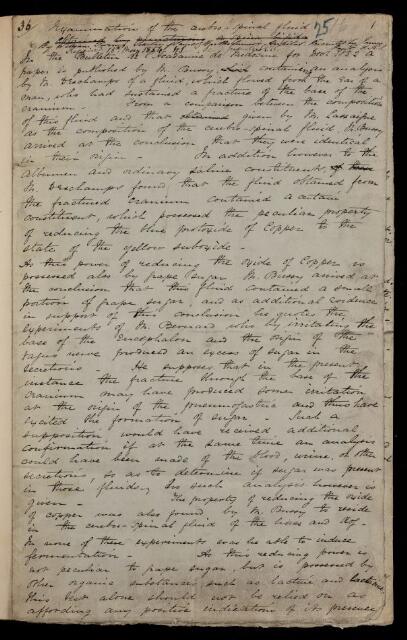 36 Examination of the cerebro-spinal fluid 25 1
By William
In the Bulletin de l'Academie de Médecine for Nov. 1852 a
paper is published by M. Bussy, containing an analysis
by M. Deschamps of a fluid, which flowed from the ear of a
man, who had sustained a fracture of the base of the
cranium — From a comparison between the composition
of this fluid and that given by M. Lassaigne
as the composition of the cerebro-spinal fluid, M. Bussy
arrived at the conclusion that they were identical
in their origin — In addition however to the
albumen and ordinary saline constituents,
M. Deschamps found that the fluid obtained from
the fractured cranium contained a certain
constituent, which possessed the peculiar property
of reducing the blue protoxide of Copper to the
state of the yellow suboxide —
As this power of reducing the oxide of Copper is
possessed also by grape sugar M. Bussy arrived at
the conclusion that this fluid contained a small
portion of grape sugar, and as additional evidence
in support of this conclusion he quotes the
experiments of M. Bernard who by irritating the
base of the Encephalon and the origin of the
vagus nerve produced an excess of sugar in the
secretions He supposes that in the present
instance the fracture through the base of the
cranium may have produced some irritation
at the origin of the pneumogastric and thus have
excited the formation of sugar Such a
supposition would have received additional
confirmation if at the same time an analysis
could have been made of the blood, urine, or other
secretions, so as to determine if sugar was present
in those fluids, No such analysis however is
given — The property of reducing the oxide
of copper was also found by M. Bussy to reside
in the cerebro-spinal fluid of the horse and dog —
In none of these experiments was he able to induce
fermentation — As this reducing power is
not peculiar to grape sugar, but is possessed by
other organic substances such as lactine and
this test alone should not be relied on as
affording any positive indication of its presence